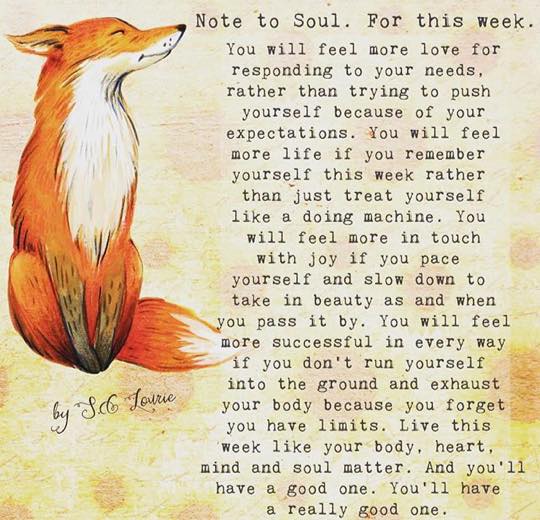 Note to Soul. For this week.
You will feel more love for
responding to your needs,
rather than trying to push
yourself because of your
expectations. You will feel
more life if you remember
yourself this week rather
than just treat yourself
like a doing machine. You
will feel more in touch
with joy if you pace
yourself and slow down to
take in beauty as and when
you pass it by. You will feel
more successful in every way
if you don't run yourself
into the ground and exhaust
your body because you forget
you have limits. Live this
week like your body, heart,
mind and soul matter. And you'll
have a good one. You'll have
a really good one.
by S.C Lourie